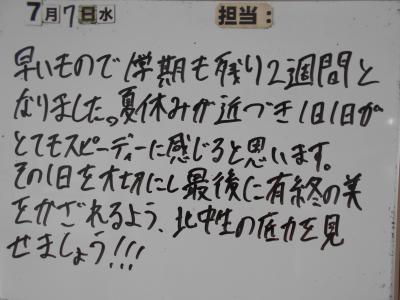 7月7日水 担当:
早いもので1学期も残り2週間と
なりました。夏休みが近づき1日1日が
とてもスピーディーに感じると思います。
その1日を大切にし最後に有終の美
をかざれるよう、北中生の底力を見
せましょう!!!